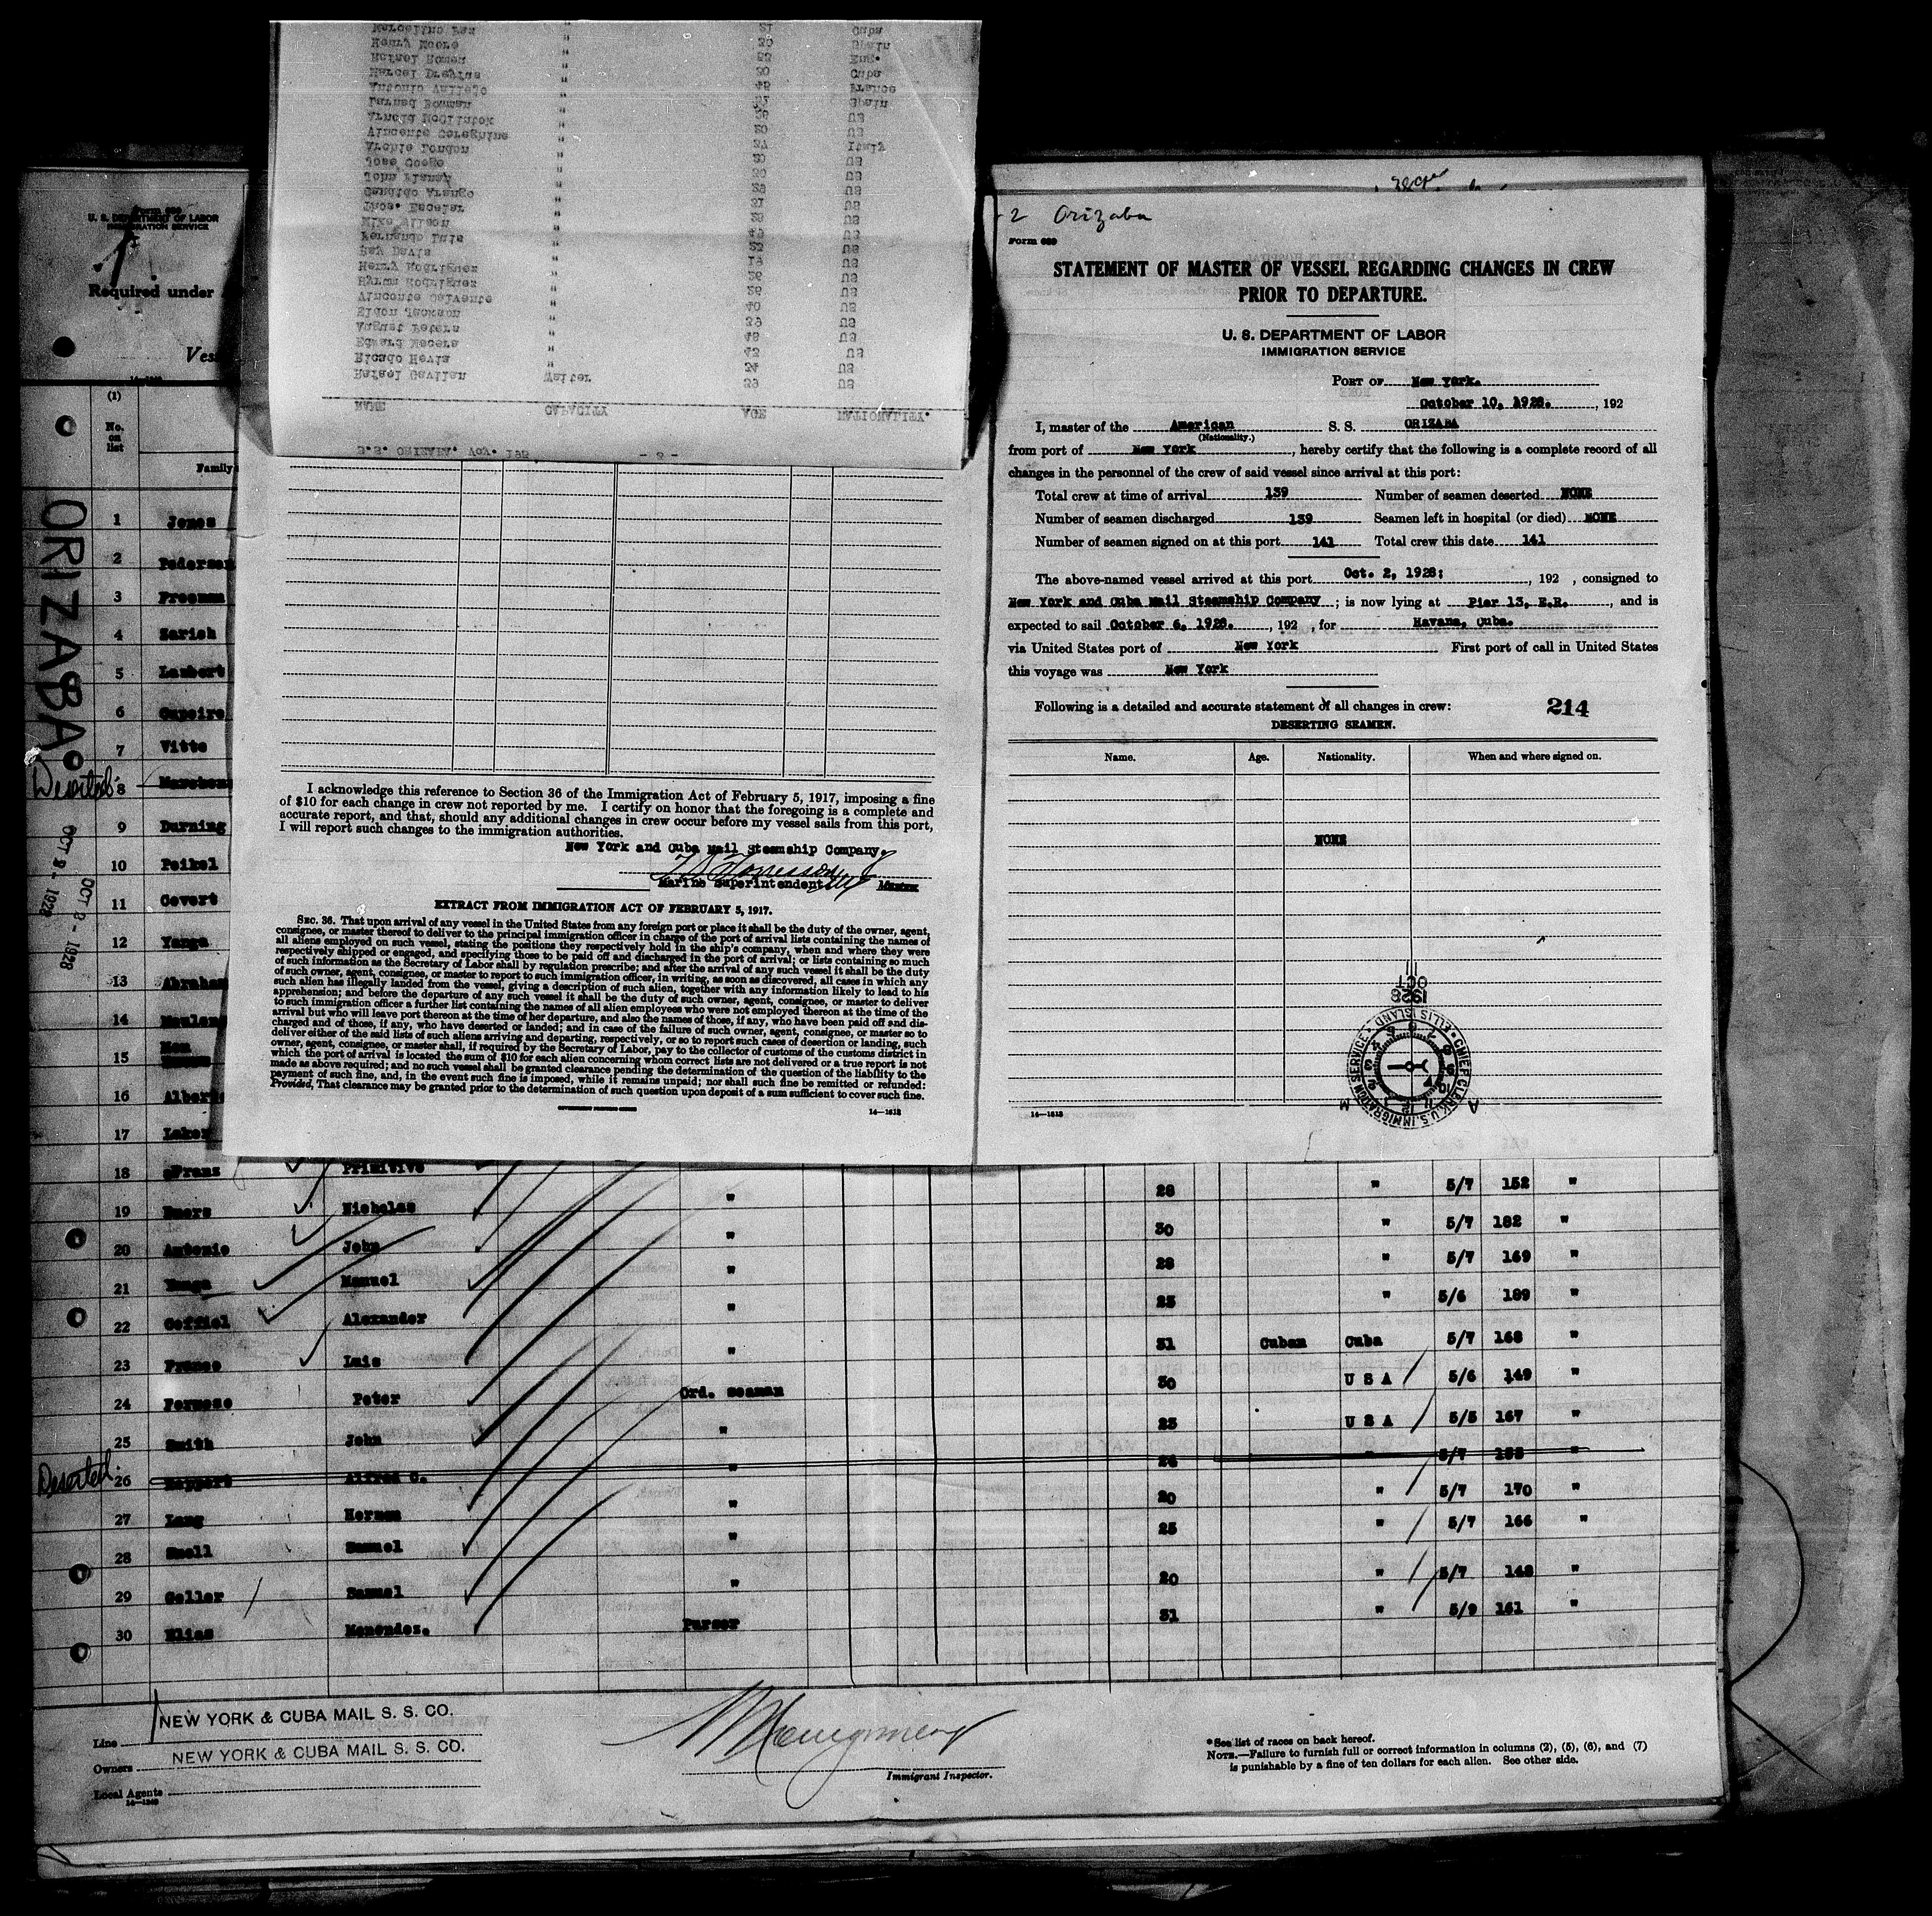 Form 689
U. S. DEPARTMENT OF LABOR
IMMIGRATION SERVICE
Required under
(1)
No. on list
Family
ORIZABA
OCT 2 - 1928
OCT 2 - 1928
1 Jones
2 Pederson
3 Freeman
4 Zarich
5 Lambert
6
7 Vitto
Deserted 8
9 Durning
10 Peikel
11 Covert
12
13 Abraham
14
15
16 Albert
17 Laker
S.S. ORIZABA. Voy. 192. - 2 -
NAME CAPACITY AGE NATIONALITY.
Rafael Gavilan Waiter 39 US
Ricado Hevia " 24 US
Edward Macera " 43 US
August Peters " 48 US
Eldon Jackson " 39 US
Vincente Calvente " 40 US
Hyman Rodriguez " 26 US
Henry Rodriguez " 26 US
Ray Davis " 19 US
Fernando Luis " 22 US
Mike Wilson " 49 US
Thos. Escolar " 28 US
Candido Arango " 31 US
John Planay " 29 US
Jose Coego " 30 US
Archie Rondon " 20 US
Vincente Coreghino " 37 Italy
Arnold McClintok " 20 US
Barnad Bowman " 26 US
Antonio Vallejo " Spain
Marcel Dreyfus " 48 France
Rafael Romen " 30 Cuba
Henry Moore " Eng.
Marcelino Rea " Spain
21 Cuba
I acknowledge this reference to Section 36 of the Immigration Act of February 5, 1917, imposing a fine
of $10 for each change in crew not reported by me. I certify on honor that the foregoing is a complete and
accurate report, and that, should any additional changes in crew occur before my vessel sails from this port,
I will report such changes to the immigration authorities.
New York and Cuba Mail Steamship Company.
Marine Superintendent Master
EXTRACT FROM IMMIGRATION ACT OF FEBRUARY 5, 1917.
SEC. 36. That upon arrival of any vessel in the United States from any foreign port or place it shall be the duty of the owner, agent,
consignee, or master thereof to deliver to the principal immigration officer in charge of the port of arrival lists containing the names of
all aliens employed on such vessel, stating the positions they respectively hold in the ship's company, when and where they were
respectively shipped or engaged, and specifying those to be paid off and discharged in the port of arrival; or lists containing so much
of such information as the Secretary of Labor shall by regulation prescribe; and after the arrival of any such vessel it shall be the duty
of such owner, agent, consignee, or master to report to such immigration officer, in writing, as soon as discovered, all cases in which any
such alien has illegally landed from the vessel, giving a description of such alien, together with any information likely to lead to his
apprehension; and before the departure of any such vessel it shall be the duty of such owner, agent, consignee, or master to deliver
to such immigration officer a further list containing the names of all alien employees who were not employed thereon at the time of the
arrival but who will leave port thereon at the time of her departure, and also the names of those, if any, who have been paid off and dis-
charged and of those, if any, who have deserted or landed; and in case of the failure of such owner, agent, consignee, or master so to
deliver either of the said lists of such aliens arriving and departing, respectively, or so to report such cases of desertion or landing, such
owner, agent, consignee, or master shall, if required by the Secretary of Labor, pay to the collector of customs of the customs district in
which the port of arrival is located the sum of $10 for each alien concerning whom correct lists are not delivered or a true report is not
made as above required; and no such vessel shall be granted clearance pending the determination of the question of the liability to the
payment of such fine, and, in the event such fine is imposed, while it remains unpaid; nor shall such fine be remitted or refunded:
Provided, That clearance may be granted prior to the determination of such question upon deposit of a sum sufficient to cover such fine.
GOVERNMENT PRINTING OFFICE 14—1618
2 Orizaba
Form 689
STATEMENT OF MASTER OF VESSEL REGARDING CHANGES IN CREW
PRIOR TO DEPARTURE.
U. S. DEPARTMENT OF LABOR
IMMIGRATION SERVICE
PORT OF New York.
October 10, 1928. , 192
I, master of the American S. S. ORIZABA
(Nationality.)
from port of New York , hereby certify that the following is a complete record of all
changes in the personnel of the crew of said vessel since arrival at this port:
Total crew at time of arrival 139 Number of seamen deserted NONE
Number of seamen discharged 139 Seamen left in hospital (or died) NONE
Number of seamen signed on at this port 141 Total crew this date 141
The above-named vessel arrived at this port Oct. 2, 1928; , 192 , consigned to
New York and Cuba Mail Steamship Company ; is now lying at Pier 13, E.R. , and is
expected to sail October 6, 1928. , 192 , for Havana, Cuba.
via United States port of New York First port of call in United States
this voyage was New York
Following is a detailed and accurate statement of all changes in crew: 214
DESERTING SEAMEN.
Name. Age. Nationality. When and where signed on.
NONE
1928
OCT
11
CHIEF CLERK, U.S. IMMIGRATION SERVICE • ELLIS ISLAND
A M
14—1618
18 Franz Primitivo
19 Buers Nicholas " 28 " 5/7 152 "
20 Antonio John " 30 " 5/7 182 "
21 Manuel " 28 " 5/7 169 "
22 Coffiel Alexander " 23 " 5/6 189 "
23 Franco Luis " 31 Cuban Cuba 5/7 168 "
24 Formoso Peter Ord. seaman 30 U S A 5/6 149 "
25 Smith John " 23 U S A 5/5 167 "
Deserted 26 Reppert Alfred C. " 24 " 5/7 "
27 Lang Herman " 20 " 5/7 170 "
28 Snell Samuel " 25 " 5/7 166 "
29 Geller Samuel " 20 " 5/7 148 "
30 Elias Menendez. Purser 31 " 5/9 161 "
Line NEW YORK & CUBA MAIL S. S. CO.
Owners NEW YORK & CUBA MAIL S. S. CO.
Local Agents
14—1240
Immigrant Inspector.
*See list of races on back hereof.
NOTE.—Failure to furnish full or correct information in columns (2), (5), (6), and (7)
is punishable by a fine of ten dollars for each alien. See other side.